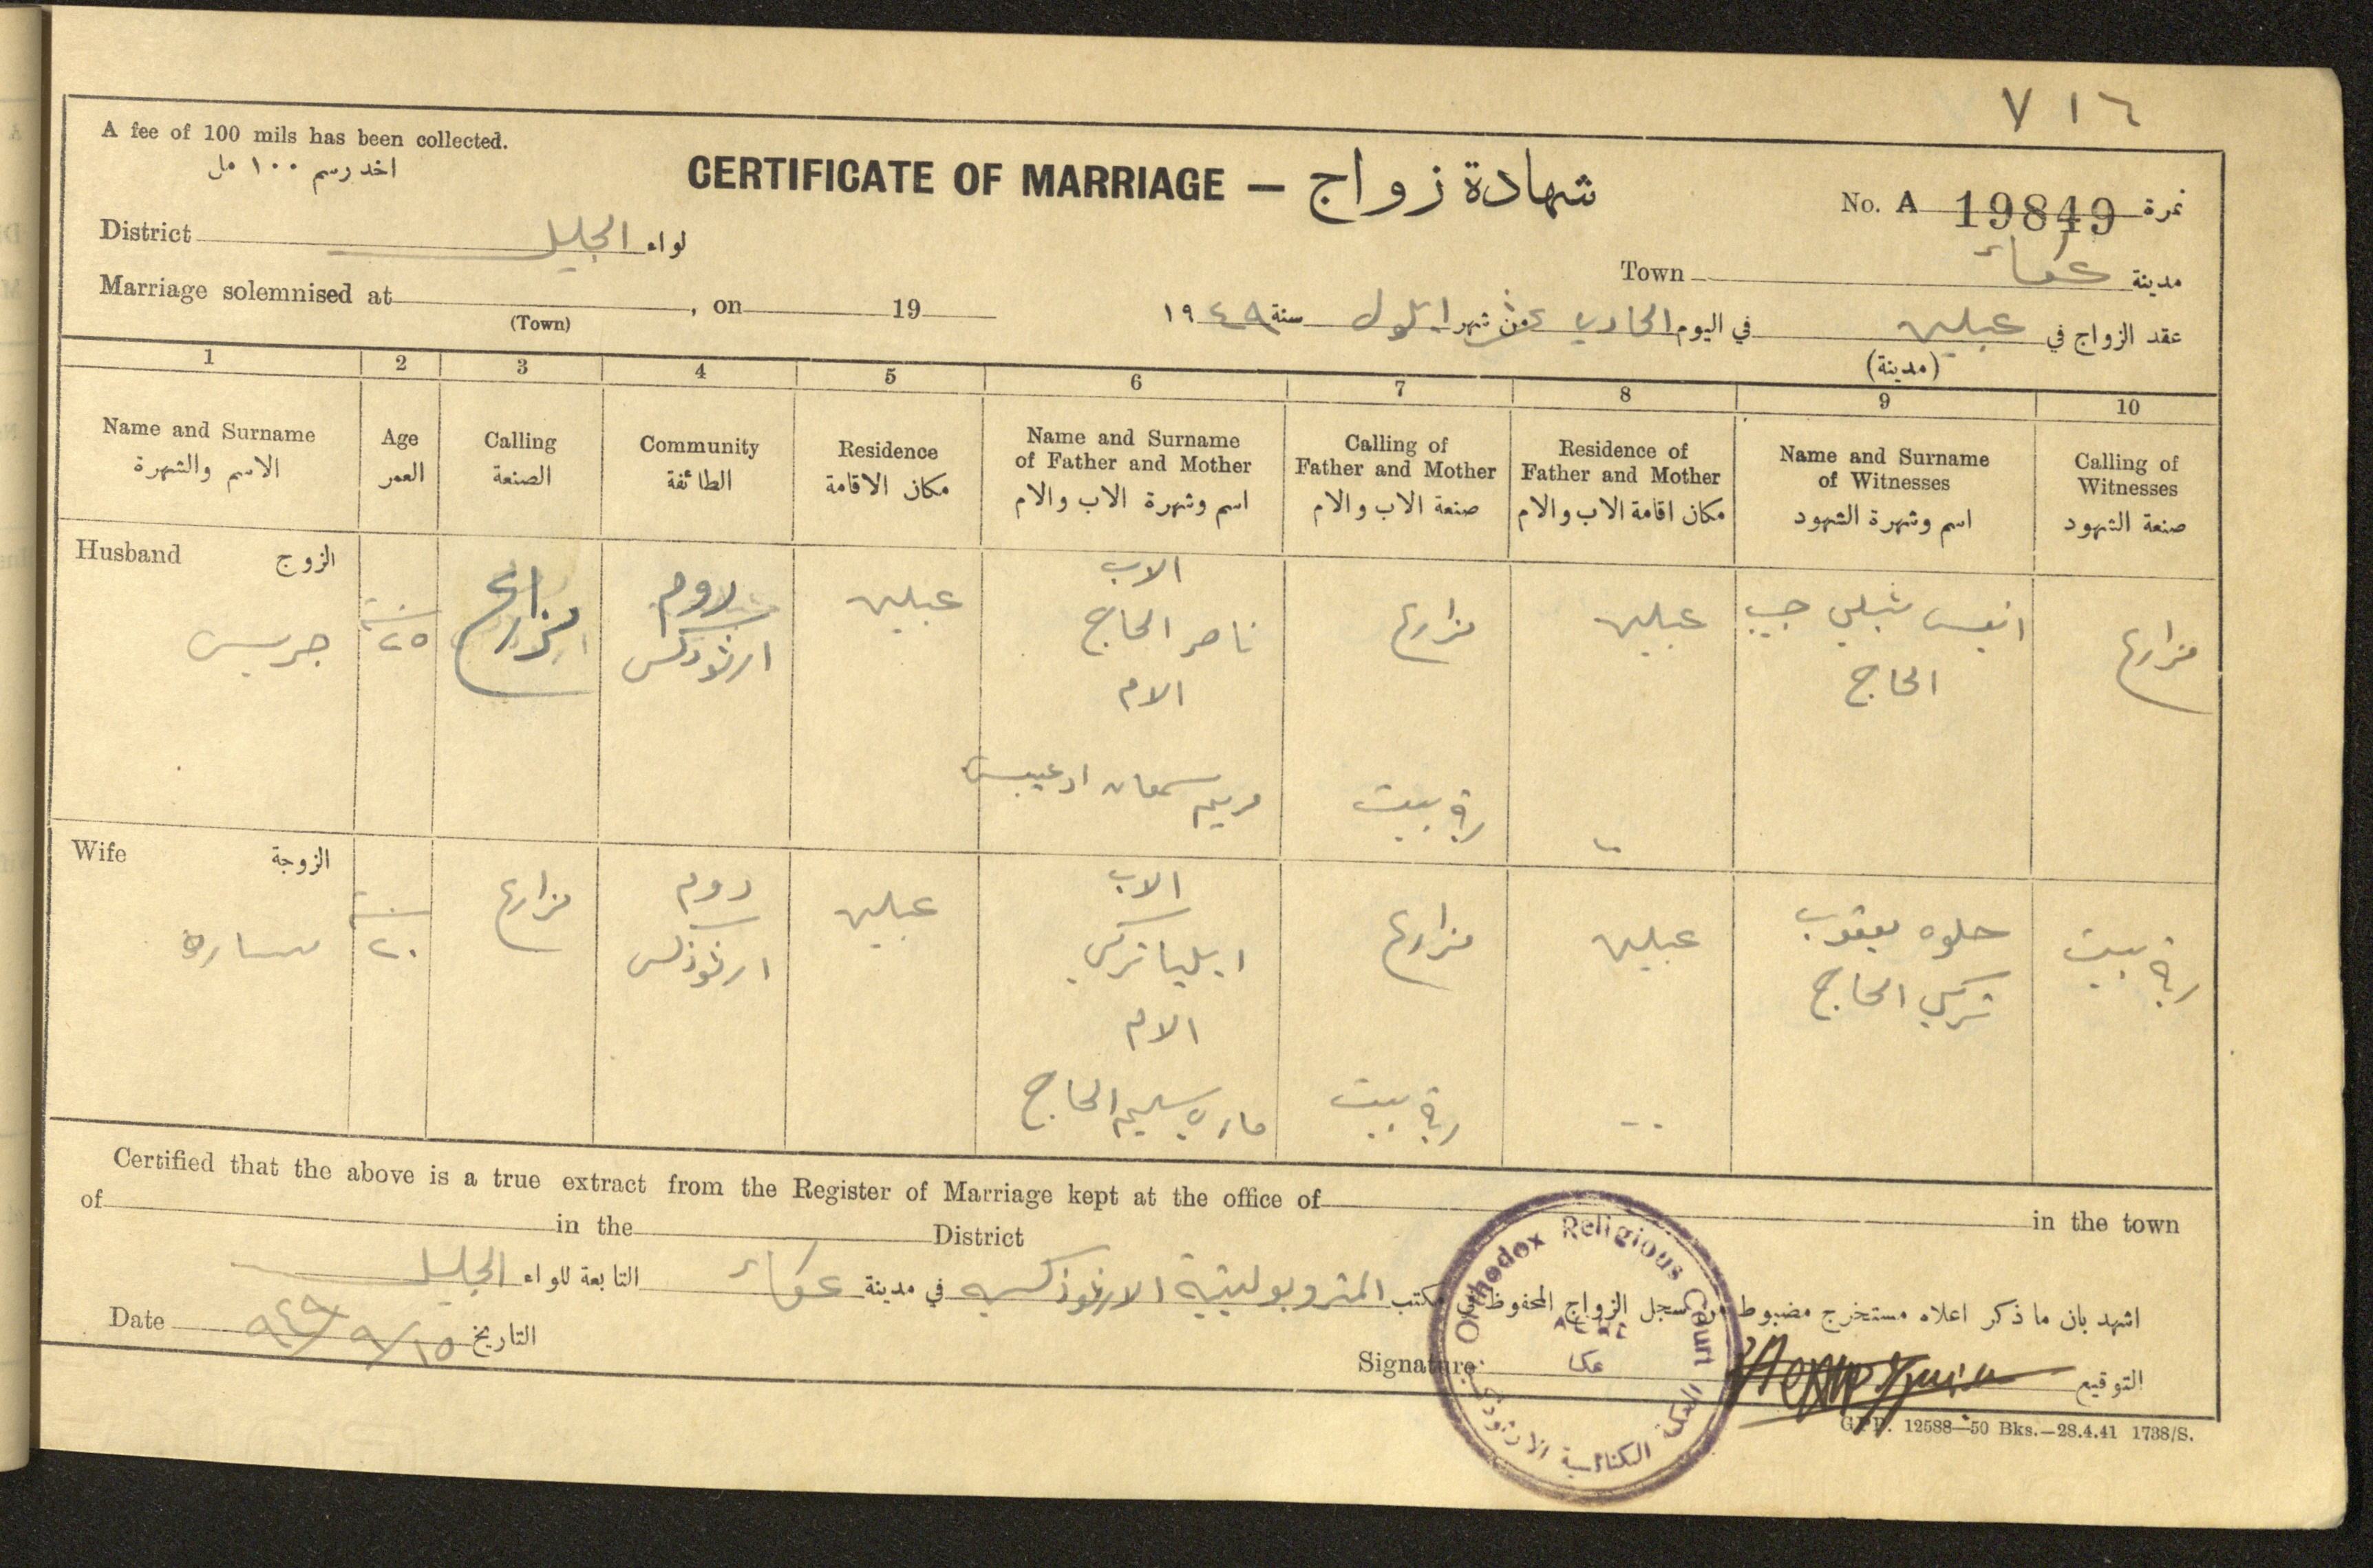 ٧١٦
A fee of 100 mils has been collected.
اخد رسم ١٠٠ مل
CERTIFICATE OF MARRIAGE — شهادة زواج
No. A 19849 نمرة
District لواء الجليل
Town مدينة عكاء
Marriage solemnised at , on 19
(Town)
عقد الزواج في عبلين في اليوم الحادي عشر من شهر ايلول سنة ١٩٤٩
(مدينة)
1 2 3 4 5 6 7 8 9 10
Name and Surname
الاسم والشهرة
Age
العمر
Calling
الصنعة
Community
الطائفة
Residence
مكان الاقامة
Name and Surname
of Father and Mother
اسم وشهرة الاب والام
Calling of
Father and Mother
صنعة الاب والام
Residence of
Father and Mother
مكان اقامة الاب والام
Name and Surname
of Witnesses
اسم وشهرة الشهود
Calling of
Witnesses
صنعة الشهود
Husband الزوج
جريس
سنة
٢٥
مزارع
روم
ارثوذكس
عبلين
الاب
ناصر الحاج
الام
مريم سمعان
مزارع
ربة بيت
عبلين
انيس شبلي حبيب
الحاج
مزارع
Wife الزوجة
ساره
سنة
٢٠
مزارع
روم
ارثوذكس
عبلين
الاب
ايليا تركي
الام
ماري سليم الحاج
مزارع
ربة بيت
عبلين
حلوه يعقوب
تركي الحاج
ربة بيت
Certified that the above is a true extract from the Register of Marriage kept at the office of in the town
of in the District
اشهد بان ما ذكر اعلاه مستخرج مضبوط من سجل الزواج المحفوظ في مكتب المتروبوليتية الارثوذكسية في مدينة عكاء التابعة للواء الجليل
Date التاريخ ١٥/٩/٩٤٩
Signature التوقيع
Orthodox Religious Court
ACRE
عكا
المحكمة الكنائسية الارثوذكسية
G.P.P. 12588—50 Bks.—28.4.41 1738/S.